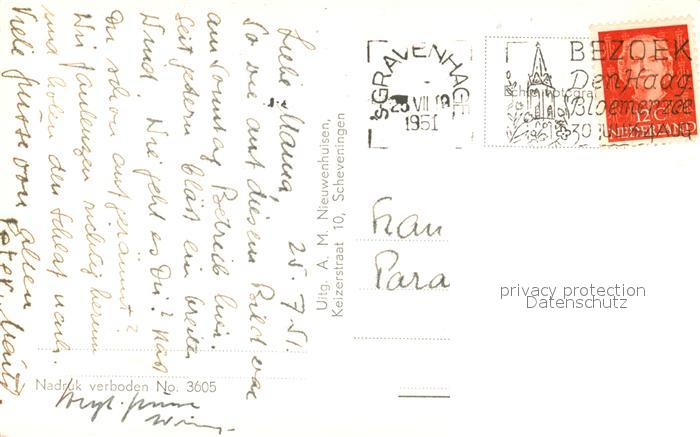 Liebe Mama, 25.7.51.
So wie auf diesem Bild war
am Sonntag Betrieb hier.
Seit gestern bläst ein breiter
Wind. Wie geht es Dir? Hast
Du schon aufgeräumt?
Wir faulenzen richtig herum
und holen den Schlaf nach.
Viele Grüsse von allen
Uitg. A. M. Nieuwenhuisen,
Keizerstraat 10, Scheveningen
Nadruk verboden No. 3605
'S GRAVENHAGE
25 VII 19
1951
BEZOEK
Den Haag
Bloemenzee
30 juni
12 C
NEDERLAND
Echte Fotogra
Frau
Para
privacy protection
Datenschutz